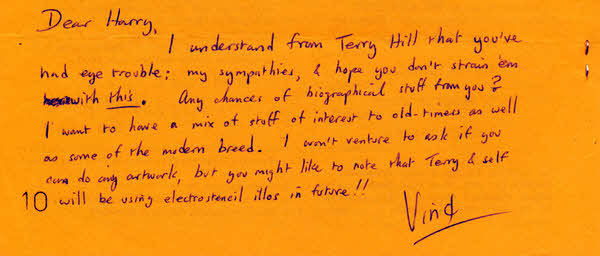 Dear Harry,
I understand from Terry Hill that you've
had eye trouble: my sympathies, & hope you don't strain 'em
with this. Any chances of biographical stuff from you?
I want to have a mix of stuff of interest to old-timers as well
as some of the modern breed. I won't venture to ask if you
can do any artwork, but you might like to note that Terry & self
10 will be using electrostencil illos in future!!
Vin¢